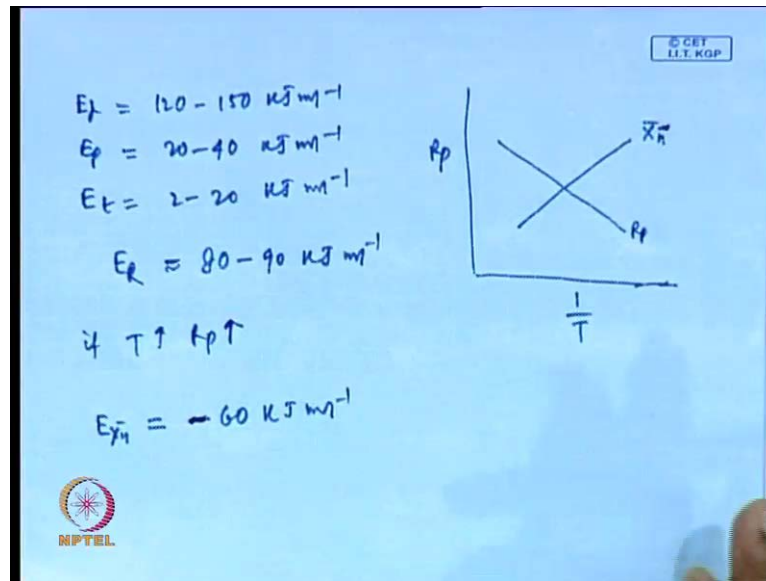 © CET
I.I.T. KGP
Ed = 120 - 150 kJ mol-1
Ep = 20 - 40 kJ mol-1
Et = 2 - 20 kJ mol-1
ER ≈ 80 - 90 kJ mol-1
if T↑ Rp↑
EX̄n = - 60 kJ mol-1
Rp
X̄n
Rp
1/T
NPTEL